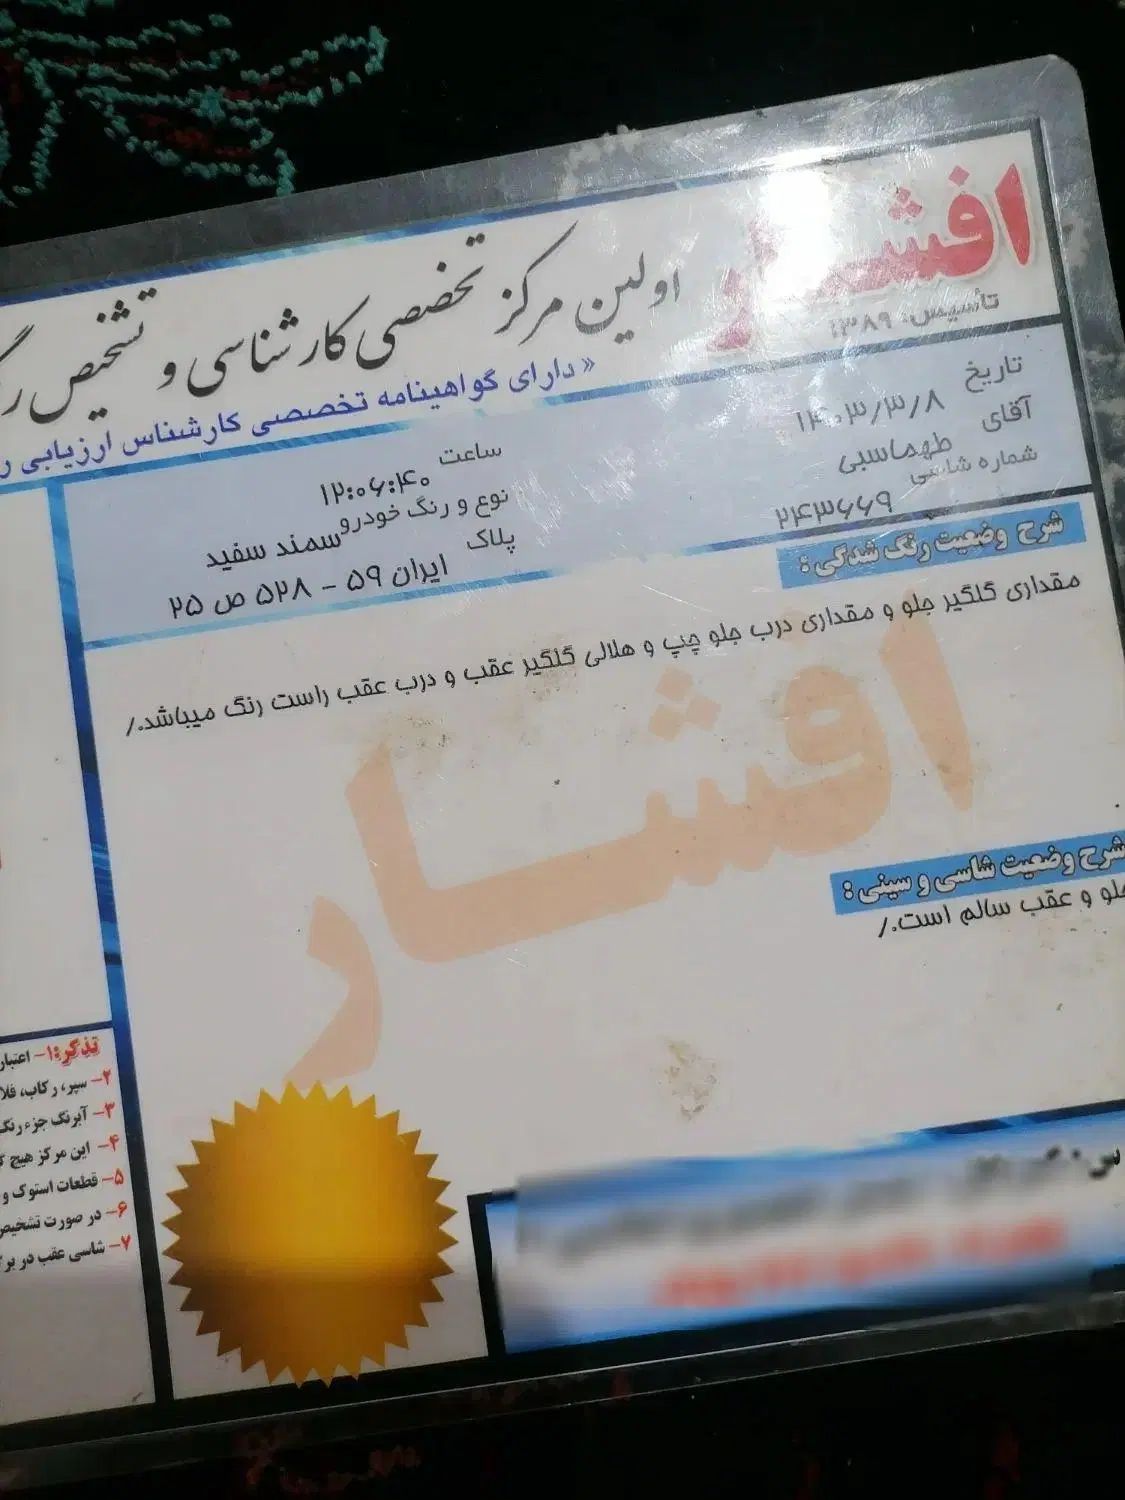 افشار
تأسیس: ۱۳۸۹
اولین مرکز تخصصی کارشناسی و تشخیص
« دارای گواهینامه تخصصی کارشناس ارزیابی
تاریخ ۱۴۰۳/۳/۸
آقای طهماسبی
شماره شاسی ۲۴۳۶۶۹
ساعت ۱۲:۰۶:۴۰
نوع و رنگ خودرو سمند سفید
پلاک ایران ۵۹ - ۵۲۸ ص ۲۵
شرح وضعیت رنگ شدگی :
مقداری گلگیر جلو و مقداری درب جلو چپ و هلالی گلگیر عقب و درب عقب راست رنگ میباشد./
افشار
شرح وضعیت شاسی و سینی :
جلو و عقب سالم است./
تذکر: ۱- اعتبار
۲- سپر، رکاب،
۳- آبرنگ جزء رنگ
۴- این مرکز هیچ
۵- قطعات استوک و
۶- در صورت تشخیص
۷- شاسی عقب در